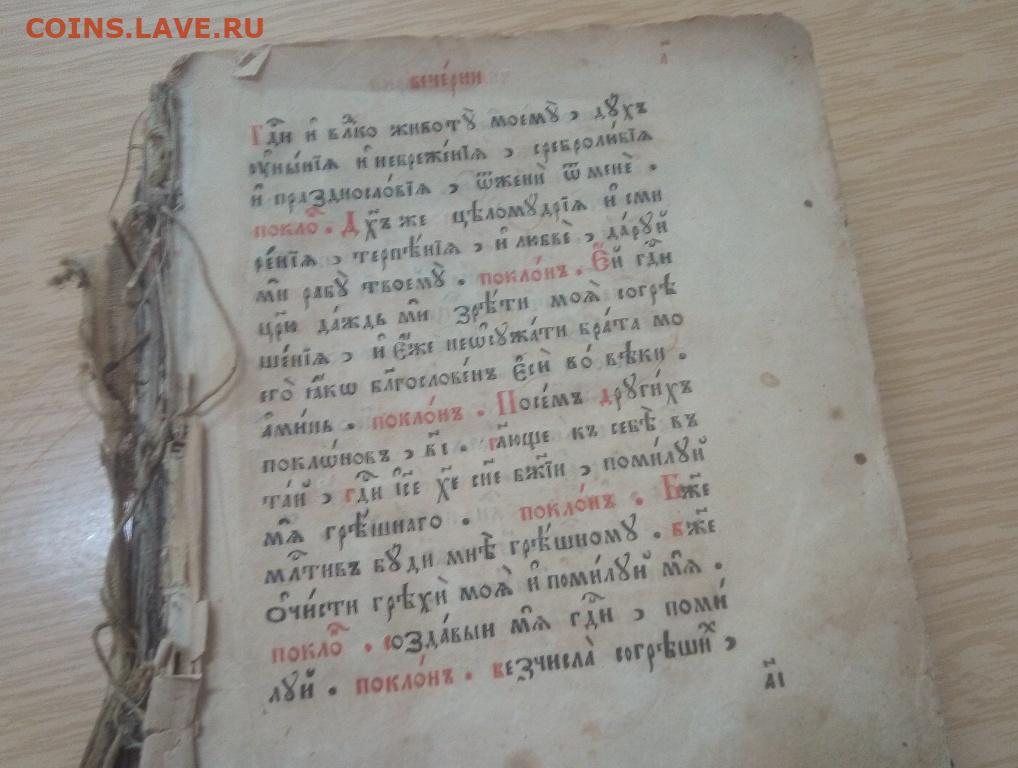 COINS.LAVE.RU
а҃
вече́рни
Гдⷭ҇и и҆ влⷣко животꙋ̀ моемꙋ̀, дꙋ́хъ
ᲂу҆ны́нїѧ и҆ небреже́нїѧ, сребролю́бїѧ
и҆ праздносло́вїѧ, ѿженѝ ѿ менѐ.
покло́ⷩ. Дх҃ъ же цѣломꙋ́дрїѧ и҆ сми
ре́нїѧ, терпѣ́нїѧ, и҆ любвѐ, да́рꙋй
мѝ рабꙋ̀ твоемꙋ̀. покло́нъ. Е҆́й гдⷭ҇и
цр҃ю да́ждь мѝ зрѣ́ти моѧ̀ согрѣ
ше́нїѧ, и҆ є҆́же неѡ҆сꙋжа́ти бра́та мо
его̀ ꙗ҆́кѡ блгⷭ҇ослове́нъ є҆сѝ во́ вѣки.
а҆ми́нь. покло́нъ. Посе́мъ дрꙋги́хъ
покло́новъ, в҃і. гл҃юще къ себѣ̀ въ
та́й, гдⷭ҇и і҆с҃е хе҃ сн҃е бж҃їи, поми́лꙋй
мѧ̀ грѣ́шнаго. покло́нъ. Бж҃е
млⷭ҇тивъ бꙋ́ди мнѣ̀ грѣ́шномꙋ. бж҃е
ѡ҆чи́сти грѣхѝ моѧ̀ и҆ поми́лꙋй мѧ̀.
покло́ⷩ. созда́выи мѧ̀ гдⷭ҇и, поми́
лꙋй. покло́нъ. безчисла̀ согрѣши́хъ,
а҃і